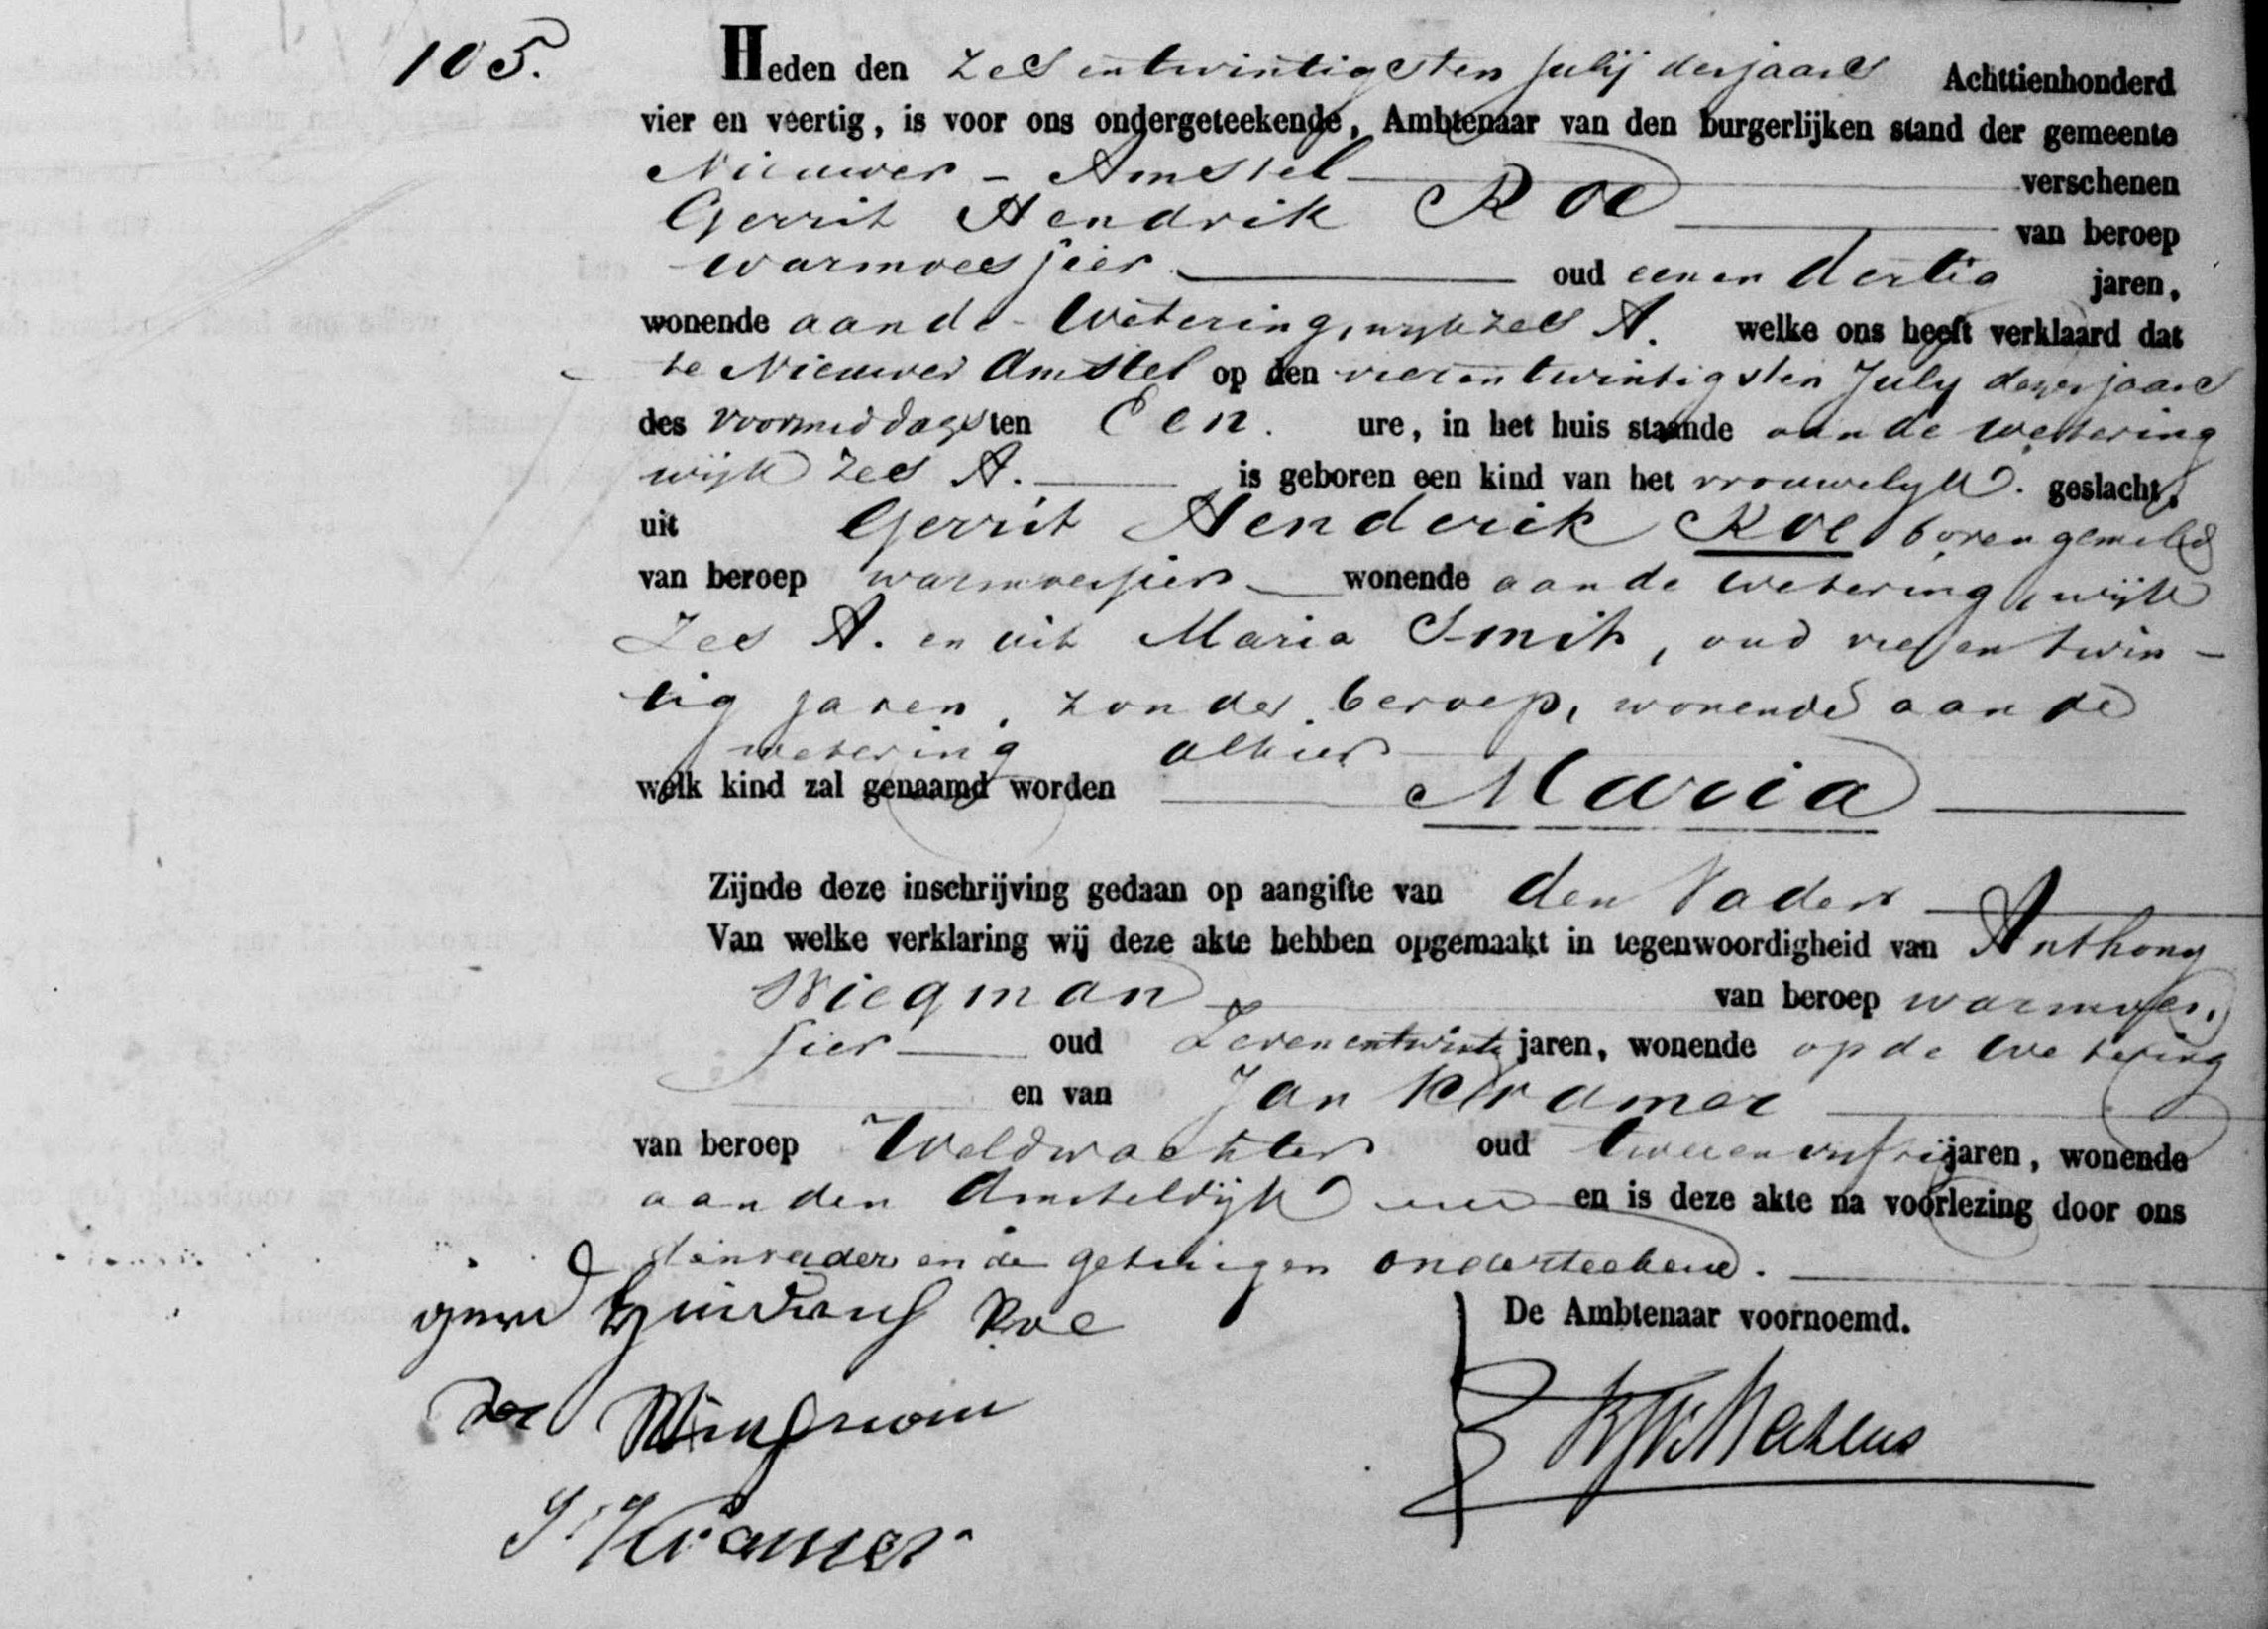 105.
Heden den zes en twintigsten Julij des jaars Achttienhonderd
vier en veertig, is voor ons ondergeteekende, Ambtenaar van den burgerlijken stand der gemeente
Nieuwer - Amstel verschenen
Gerrit Hendrik Roe van beroep
warmoesjier oud een en dertig jaren,
wonende aan de Wetering, wijk zes A. welke ons heeft verklaard dat
te Nieuwer Amstel op den vier en twintigsten July dezes jaars
des voormiddags ten Een. ure, in het huis staande aan de wetering
wijk zes A. is geboren een kind van het vrouwelyk. geslacht,
uit Gerrit Henderik Roe bovengemeld
van beroep warmoesjier wonende aan de wetering, wijk
zes A. en uit Maria Smit, oud en twin -
tig jaren, zonder beroep, wonende aan de
wetering alhier
welk kind zal genaamd worden Maria
Zijnde deze inschrijving gedaan op aangifte van den Vader
Van welke verklaring wij deze akte hebben opgemaakt in tegenwoordigheid van Anthony
Wiegman van beroep warmoes,
jier oud Zevenentwintig jaren, wonende op de Wetering
en van Jan Kramer
van beroep Veldwachter oud twee en vyftig jaren, wonende
aan den Amsteldijk en is deze akte na voorlezing door ons
den vader en de getuigen onderteekend.
Roe
De Ambtenaar voornoemd.
J. Kramer